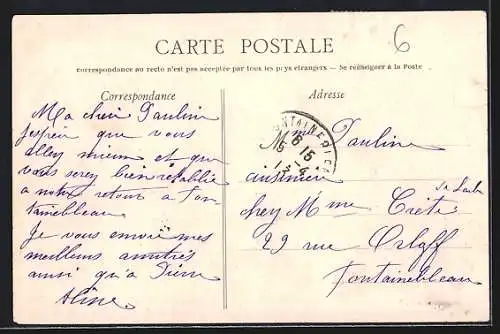 CARTE POSTALE
6
Correspondance au recto n'est pas acceptée par tous les pays étrangers — Se renseigner à la Poste
Correspondance
Ma cher Pauline
j'espère que vous
allez mieux et que
vous serez bien rétablie
a notre retour a Fon
tainebleau
Je vous envoie mes
meilleurs amitiés
ainsi qu'a Pierre
Aline
Adresse
Mme Pauline
cuisinière
chez Mme
29 rue
Fontainebleau